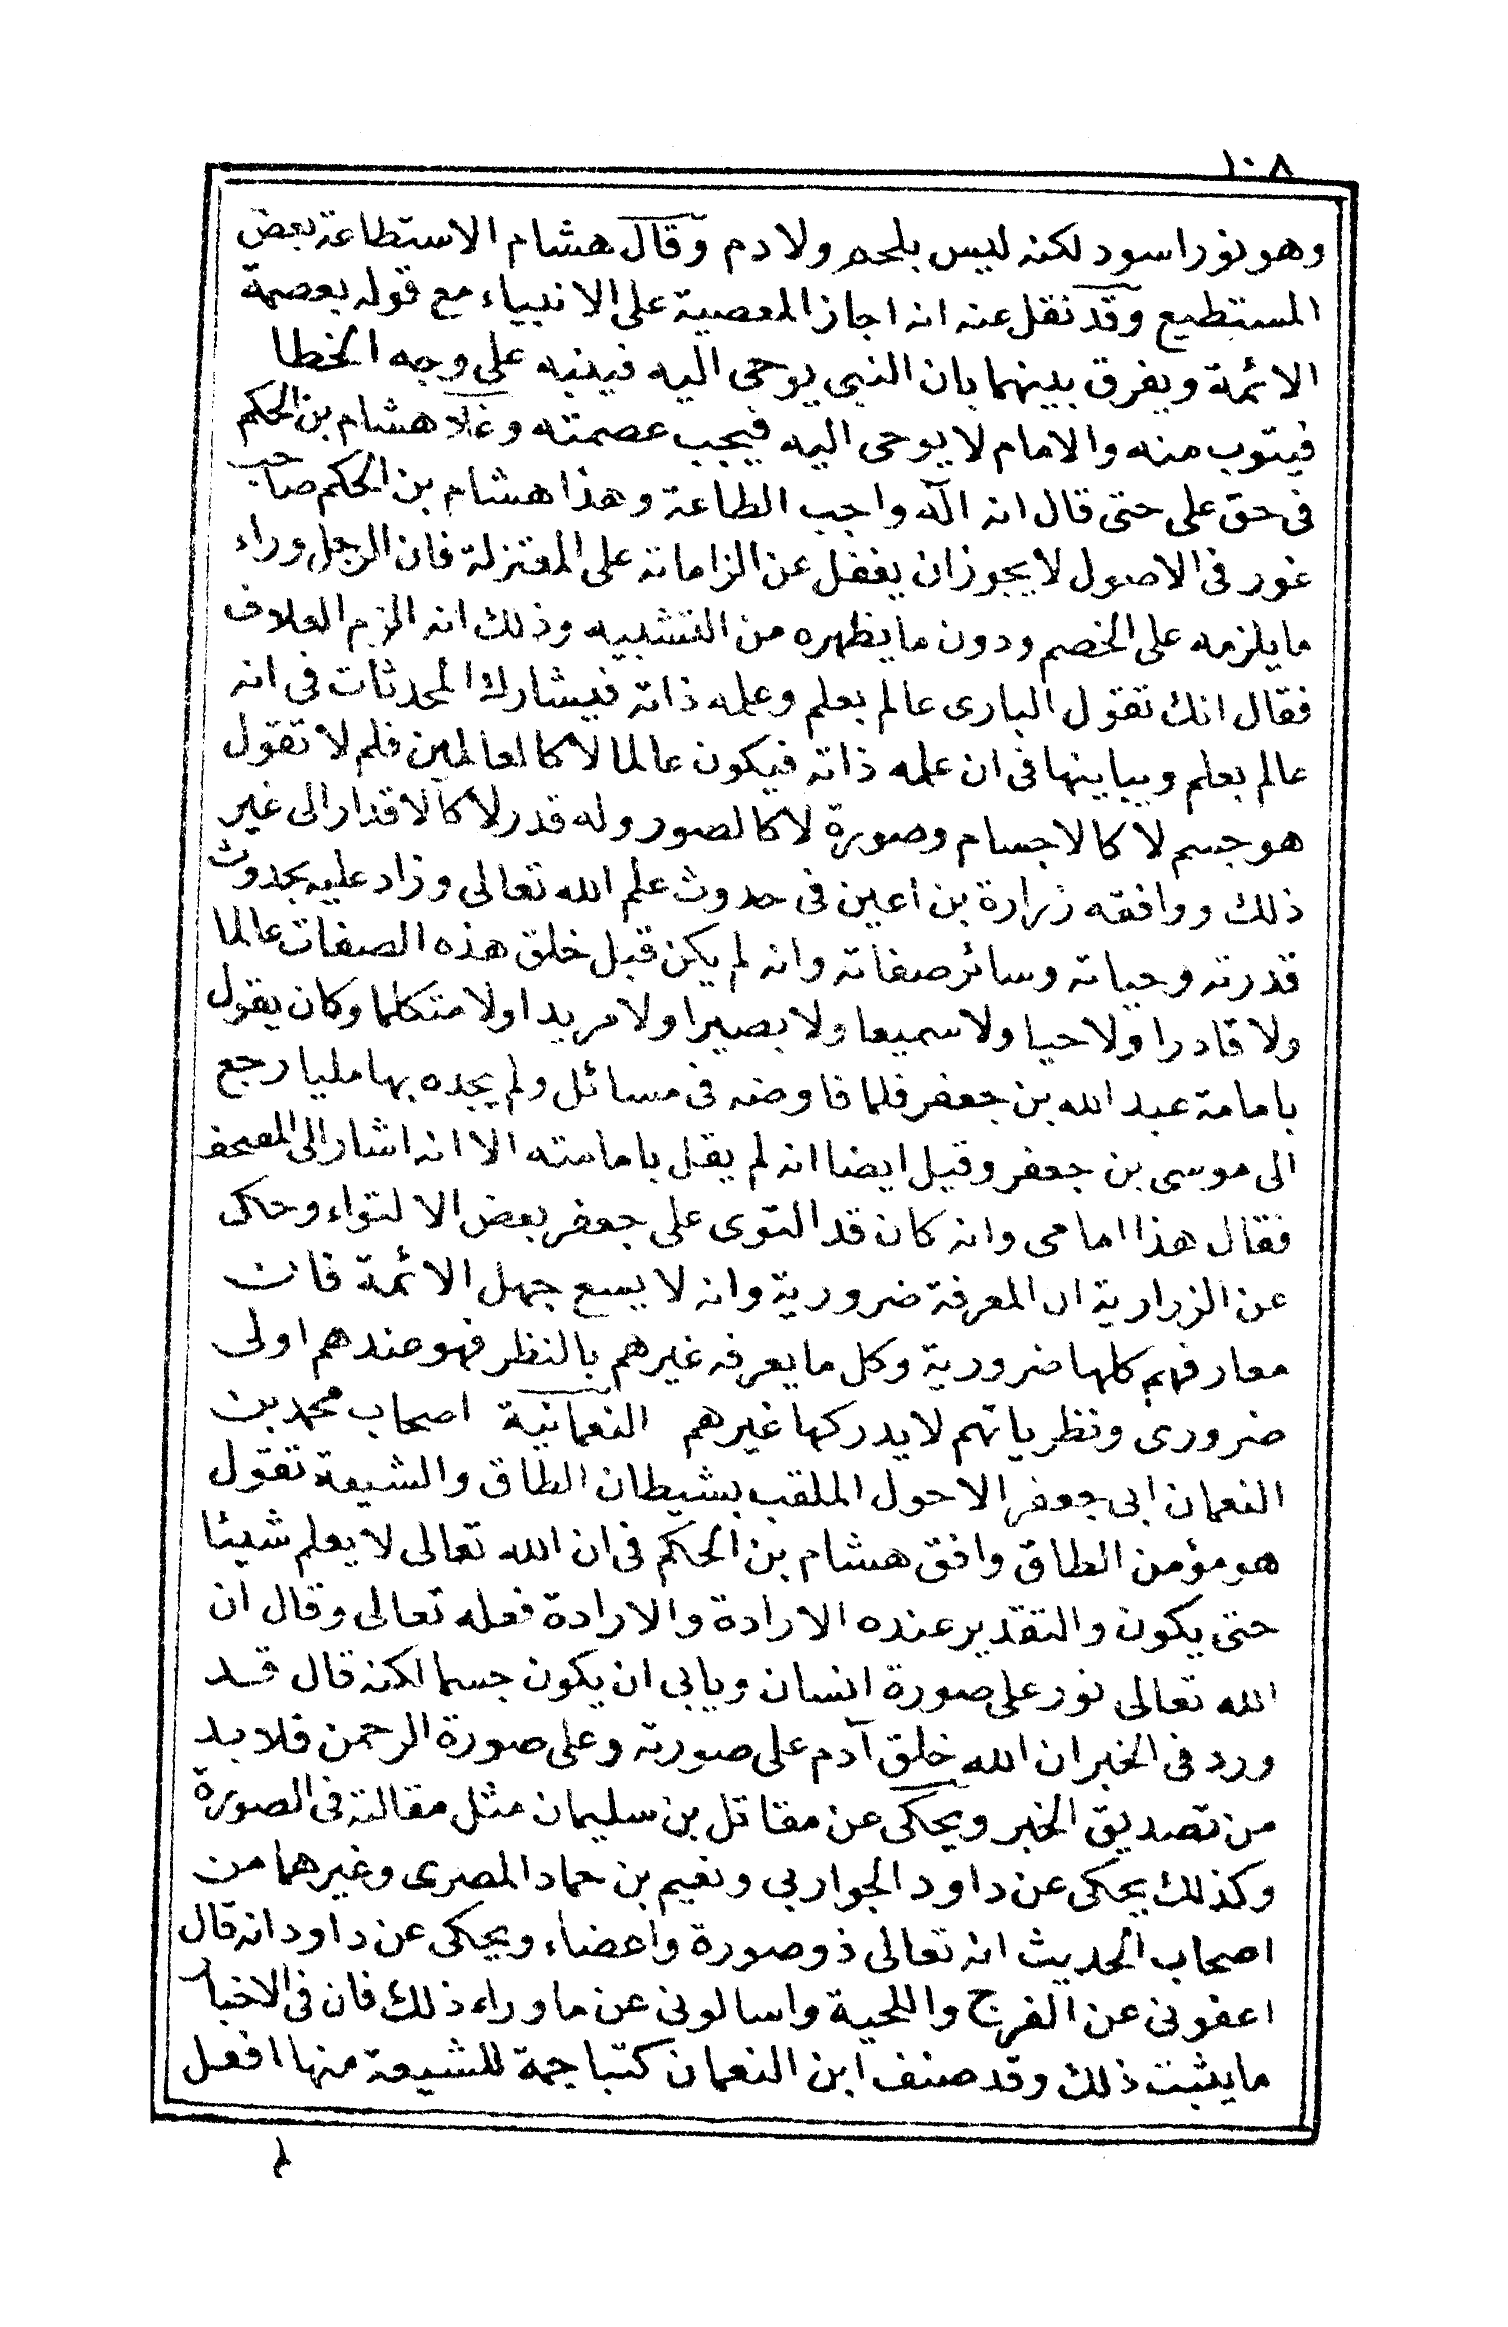 ١٠٨
وهو نور اسود لكنه ليس بلحم ولا دم وقال هشام الاستطاعة بعض
المستطيع وقد نقل عنه انه اجاز المعصية على الانبياء مع قوله بعصمة
الائمة ويفرق بينهما بان النبى يوحى اليه فينبه على وجه الخطا
فيتوب منه والامام لا يوحى اليه فيجب عصمته وغلا هشام بن الحكم
فى حق على حتى قال انه اله واجب الطاعة وهذا هشام بن الحكم صاحب
غور فى الاصول لا يجوز ان يغفل عن الزاماته على المعتزلة فان الرجل وراء
ما يلزمه على الخصم ودون ما يظهره من التشبيه وذلك انه الزم العلاف
فقال انك تقول البارى عالم بعلم وعلمه ذاته فيشارك المحدثات فى انه
عالم بعلم ويباينها فى ان علمه ذاته فيكون عالما لا كالعالمين فلم لا تقول
هو جسم لا كالاجسام وصورة لا كالصور وله قدر لا كالاقدار الى غير
ذلك ووافقه زرارة بن اعين فى حدوث علم الله تعالى وزاد عليه بحدوث
قدرته وحياته وسائر صفاته وانه لم يكن قبل خلق هذه الصفات عالما
ولا قادرا ولا حيا ولا سميعا ولا بصيرا ولا مريدا ولا متكلما وكان يقول
بامامة عبد الله بن جعفر فلما فاوضه فى مسائل ولم يجده بها مليا رجع
الى موسى بن جعفر وقيل ايضا انه لم يقل بامامته الا انه اشار الى المصحف
فقال هذا امامى وانه كان قد التوى على جعفر بعض الالتواء وحكى
عن الزرارية ان المعرفة ضرورية وانه لا يسع جهل الائمة فان
معارفهم كلها ضرورية وكل ما يعرفه غيرهم بالنظر فهو عندهم اولى
ضرورى ونظرياتهم لا يدركها غيرهم النعمانية اصحاب محمد بن
النعمان ابى جعفر الاحول الملقب بشيطان الطاق والشيعة تقول
هو مؤمن الطاق وافق هشام بن الحكم فى ان الله تعالى لا يعلم شيئا
حتى يكون والتقدير عنده الارادة والارادة فعله تعالى وقال ان
الله تعالى نور على صورة انسان ويابى ان يكون جسما لكنه قال قد
ورد فى الخبر ان الله خلق آدم على صورته وعلى صورة الرحمن فلا بد
من تصديق الخبر ويحكى عن مقاتل بن سليمان مثل مقالته فى الصورة
وكذلك يحكى عن داود الجواربى ونعيم بن حماد المصرى وغيرهما من
اصحاب الحديث انه تعالى ذو صورة واعضاء ويحكى عن داود انه قال
اعفونى عن الفرج واللحية واسالونى عن ما وراء ذلك فان فى الاخبار
ما يثبت ذلك وقد صنف ابن النعمان كتبا جمة للشيعة منها افعل
لم